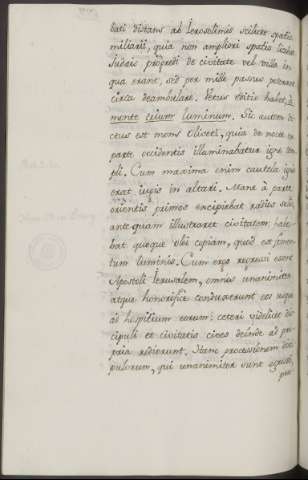 bati distans ab Ierosolimis scilicet spatio
miliarii, quia non ampliori spatio licebat
Iudeis progredi de civitate vel villa in
qua erant, sed per mille passus poterant
circa deambulare. Vetus editio habet, à
monte trium luminum. Sic autem di-
ctus est mons Oliveti, quia de nocte ex
parte occidentis illuminabatur igne tem-
pli. Cum maxima enim cautela ignis
erat iugis in altari. Mane à parte
orientis primos excipiebat radios solis,
antequam illustraret civitatem; habe-
bat quoque olei copiam, quod est fomen-
tum luminis. Cum ergo regressi essent
Apostoli Ierusalem, omnes unanimiter
atque honorifice conduxerunt eos usque
ad hospitium eorum; ceteri videlicet dis-
cipuli et civitatis cives deinde ad pro-
pria redierunt. Hanc processionem disci-
pulorum, qui unanimiter sunt egressi,